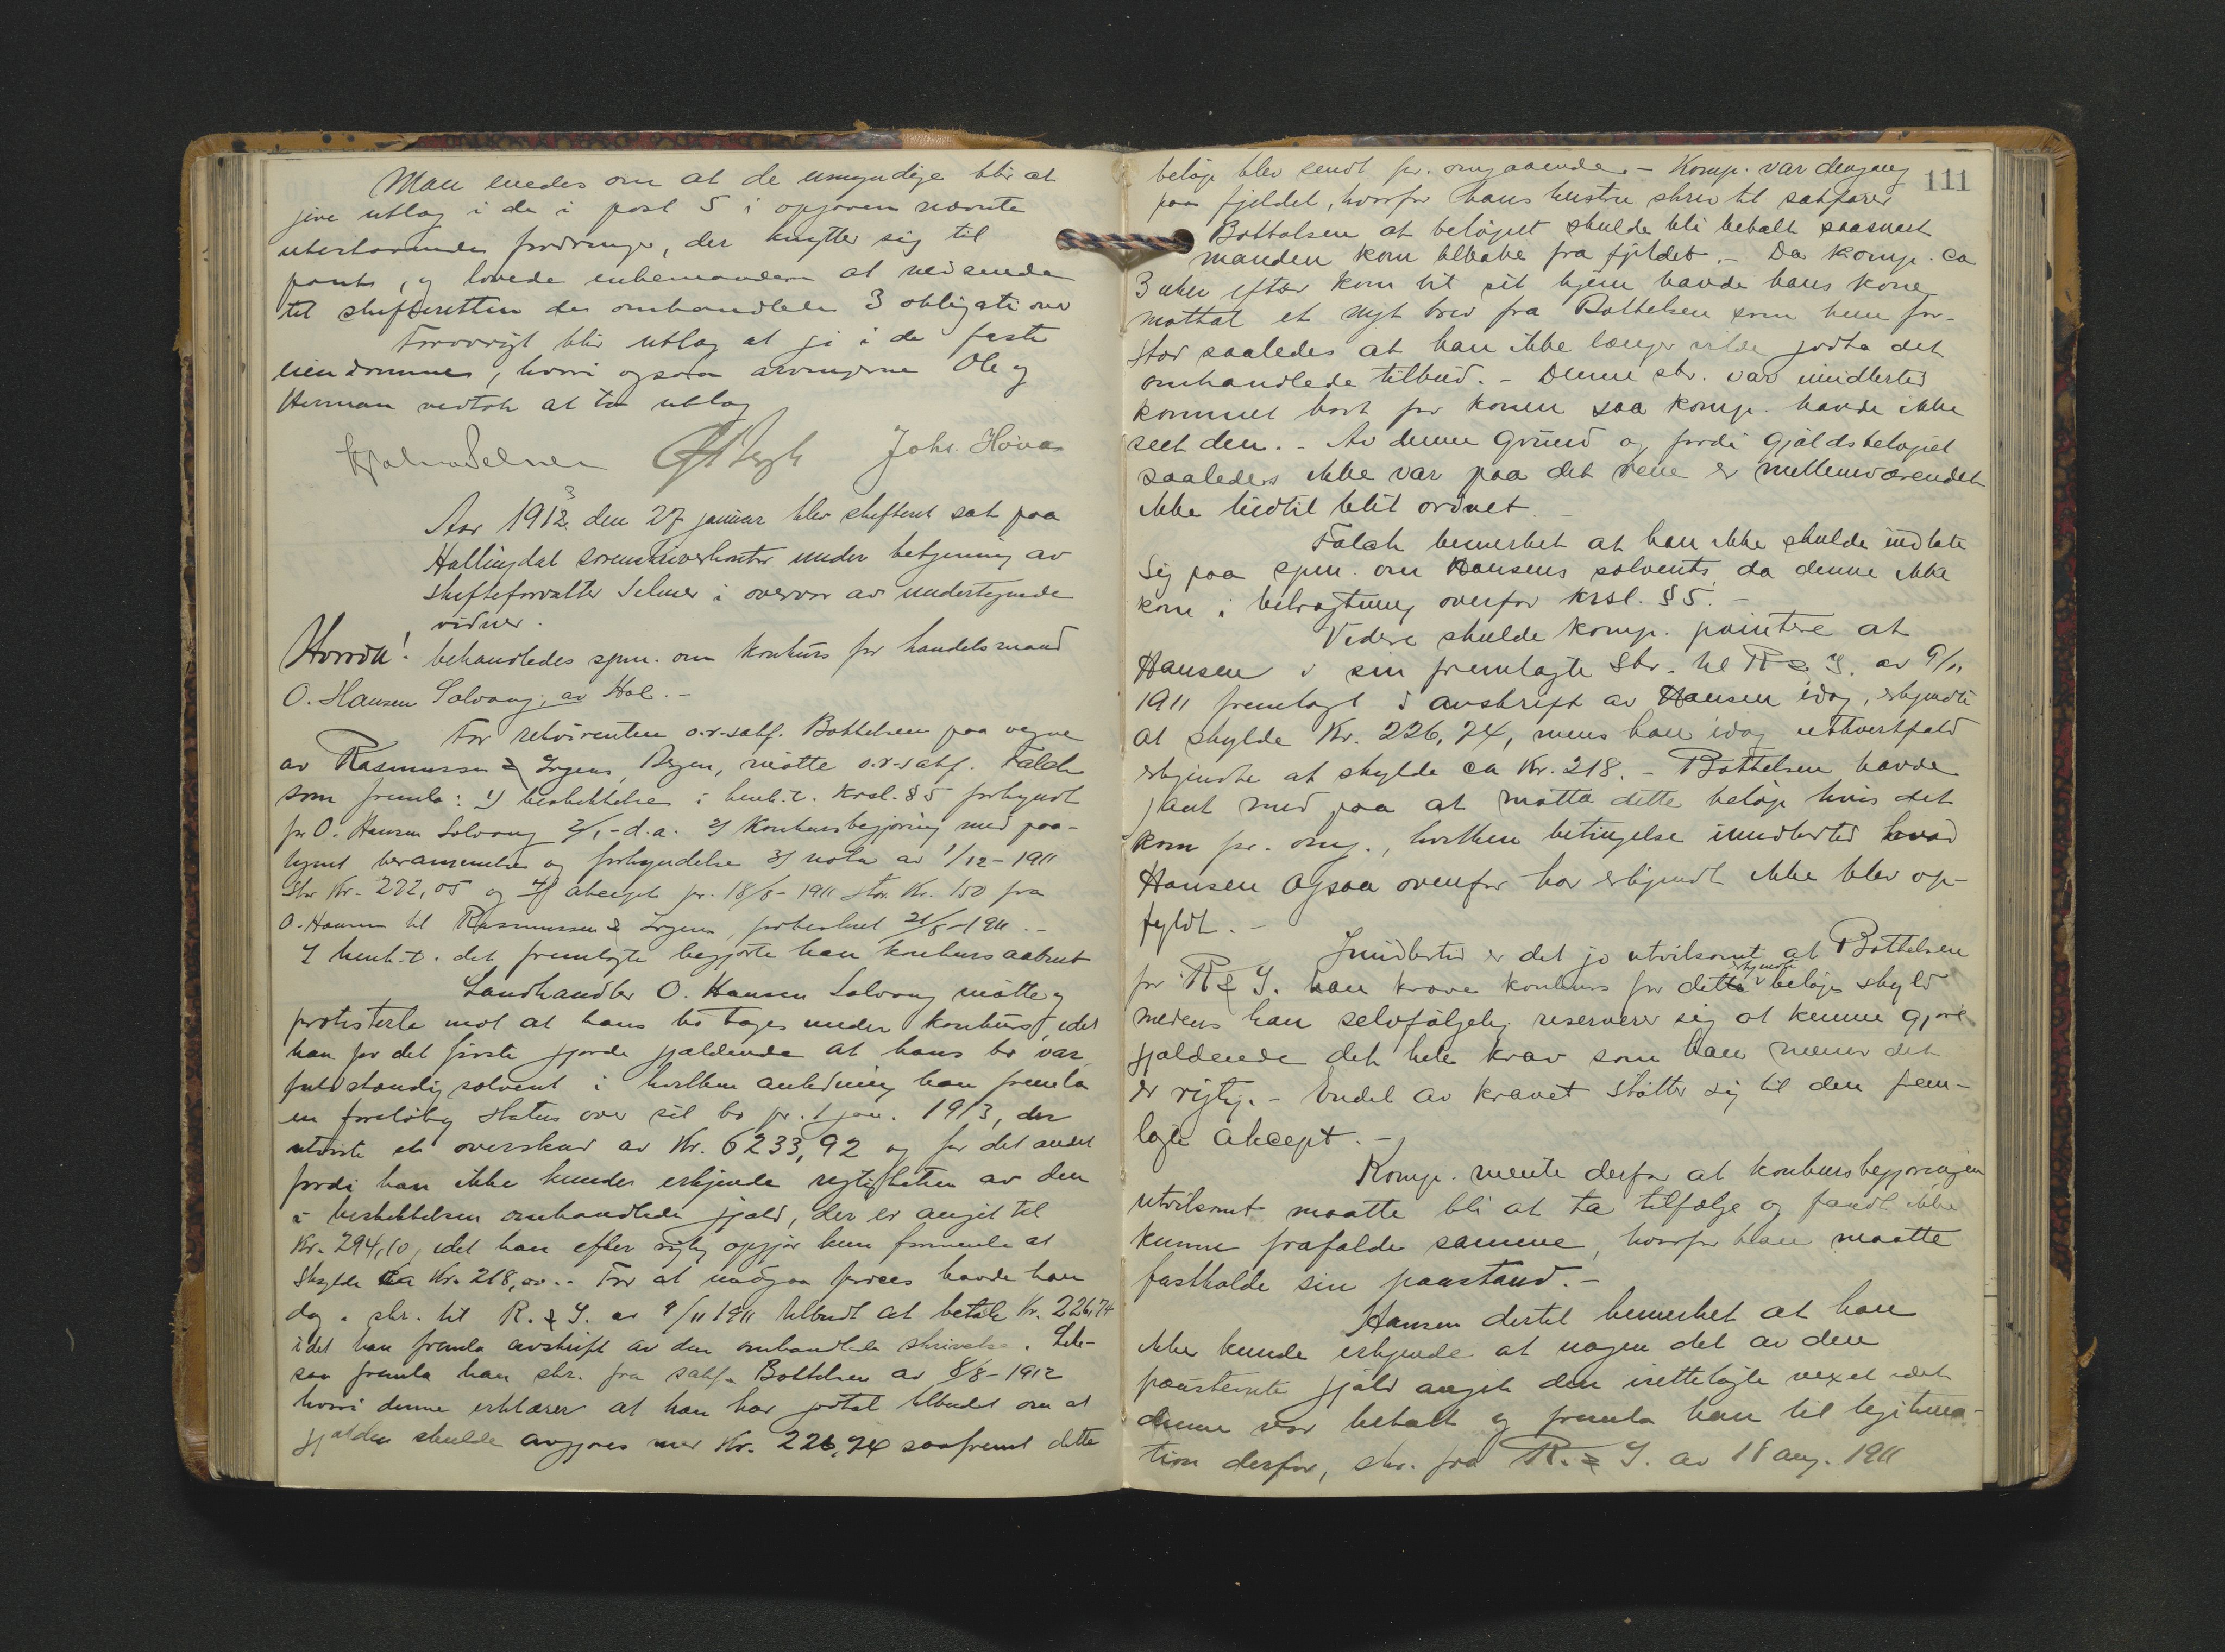 Man enedes om at de umyndige blir at
give utlæg i de i post 5 i opgaven nævnte
utestaaende fordringer, der knytter sig til
pant, og lovede enhemanden at nedsende
til skifteretten de omhandlede 3 obligationer
Forøvrigt blir utlæg at gi i de faste
eiendommer, hvori ogsaa arvingerne Ole og
Herman vedtok at ta utlæg
Hjalmar Selmer Johs. Hova
Aar 1913 den 27 januar blev skifteret sat paa
Hallingdal sorenskriverkontor under betjening av
skifteforvalter Selmer i overvær av undertegnede
vidner.
Hvorda! behandledes spm. om konkurs for handelsmand
O. Hansen Solvang, av Hol. -
For rekvirenten o.r.sakf. Bottolsen paa vegne
av Rasmussen & Irgens, Bergen, møtte o.r.sakf. Falch
som fremla: 1) beskikkelse i henh.t. krsl. § 5 forkyndt
for O. Hansen Solvang 2/1 - d.a. 2) Konkursbegjæring med paa-
tegnet berammelse og forkyndelse 3) nota av 1/12 - 1911
stor Kr. 272,05 og 4) akcept pr. 18/8 - 1911 stor Kr. 150 fra
O. Hansen til Rasmussen & Irgens, protesteret 21/8 - 1911. -
I henh.t. det fremlagte begjærte han konkurs aabnet
Landhandler O. Hansen Solvang møtte og
protesterte mot at hans bo tages under konkurs, idet
han for det første gjorde gjældende at hans bo var
fuldstændig solvent i hvilken anledning han fremla
en foreløbig status over sit bo pr. 1 jan. 1913, der
utviste et overskud av Kr. 6233,92 og for det andet
fordi han ikke kunde erkjende rigtigheten av den
i beskikkelsen omhandlede gjæld, der er angit til
Kr. 294,10, idet han efter rigtig opgjør kun formente at
skylde ca Kr. 218,00. - For at undgaa proces havde han
dog i skr. til R. & I. av 9/11 1911 tilbudt at betale Kr. 226,74
idet han fremla avskrift av den omhandlede skrivelse. Like-
saa fremla han skr. fra sakf. Bottolsen av 8/8 - 1912
hvori denne erklærer at han har godtat tilbudet om at
gjælden skulde avgjøres med Kr. 226,74 saafremt dette
111
beløp blev sendt pr. omgaaende. - Komp. var dengang
paa fjeldet, hvorfor hans hustru skrev til sakfører
Bottolsen at beløpet skulde bli betalt saasnart
manden kom tilbake fra fjeldet. - Da komp. ca
3 uker efter kom til sit hjem havde hans kone
mottat et nyt brev fra Bottelsen som hun for-
stod saaledes at han ikke længer vilde godta det
omhandlede tilbud. - Denne skr. var imidlertid
kommet bort for konen saa komp. havde ikke
seet den. - Av denne grund og fordi gjældsbeløpet
saaledes ikke var paa det rene er mellemværendet
ikke hidtil blit ordnet. -
Falch bemerket at han ikke skulde indlate
sig paa spm. om Hansens solvents, da denne ikke
kom i betragtning overfor krsl. § 5. -
Videre skulde komp. pointere at
Hansen i sin fremlagte skr. til R & I. av 9/11
1911 fremlagt i avskrift av Hansen idag, erkjendte
at skylde Kr. 226,74, mens han idag ethvertfald
erkjendte at skylde ca Kr. 218. - Bottelsen havde
gaat med paa at motta dette beløp hvis det
kom pr. omg., hvilken betingelse imidlertid hvad
Hansen ogsaa ovenfor har erkjendt ikke blev op-
fyldt. -
Imidlertid er det jo utvilsomt at Bottelsen
for R & I. kan kræve konkurs for dette erkjendte beløps skyld
medens han selvfølgelig reserverer sig at kunne gjøre
gjældende det hele krav som han mener det
er rigtig. - Endel av kravet støtter sig til den frem-
lagte akcept. -
Komp. mente derfor at konkursbegjæringen
utvilsomt maatte bli at ta tilfølge og fandt ikke
kunne frafalde samme, hvorfor han maatte
fastholde sin paastand. -
Hansen dertil bemerket at han
ikke kunde erkjende at nogen del av den
paastevnte gjæld angik den irettelagte vexel idet
denne var betalt og fremla han til legitima-
tion derfor, skr. fra R. & I. av 18 aug. 1911